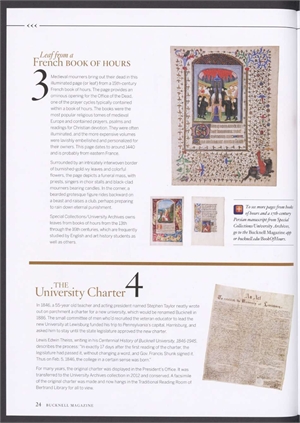 <<<
Leaf from a
French BOOK OF HOURS
3
Medieval mourners bring out their dead in this
illuminated page (or leaf) from a 15th-century
French book of hours. This page provides an
ominous opening for the Office of the Dead,
one of the prayer cycles typically contained
within a book of hours. The books were the
most popular religious tomes of medieval
Europe and contained prayers, psalms and
readings for Christian devotion. They were often
illuminated, and the more expensive volumes
were lavishly embellished and personalized for
their owners. This page dates to around 1440
and is probably from western France.
Surrounded by an intricately interwoven border
of burnished gold ivy leaves and colorful
flowers, the page depicts a funeral mass, with
priests, singers in choir stalls and black-clad
mourners bearing candles. In the corner, a
bearded grotesque figure rides backward on
a beast and raises a club, perhaps preparing
to ram down eternal punishment.
Special Collections/University Archives owns
leaves from books of hours from the 13th
through the 16th centuries, which are frequently
studied by English and art history students as
well as others.
To see more pages from books
of hours and a 17th-century
Persian manuscript from Special
Collections/University Archives,
go to the Bucknell Magazine app
or bucknell.edu/BookOfHours.
THE
University Charter
4
In 1846, a 55-year-old teacher and acting president named Stephen Taylor neatly wrote
out on parchment a charter for a new university, which would be renamed Bucknell in
1886. The small committee of men who'd recruited the veteran educator to lead the
new University at Lewisburg funded his trip to Pennsylvania's capital, Harrisburg, and
asked him to stay until the state legislature approved the new charter.
Lewis Edwin Theiss, writing in his Centennial History of Bucknell University, 1846-1946,
describes the process: "In exactly 17 days after the first reading of the charter, the
legislature had passed it, without changing a word, and Gov. Francis Shunk signed it.
Thus on Feb. 5, 1846, the college in a certain sense was born."
For many years, the original charter was displayed in the President's Office. It was
transferred to the University Archives collection in 2012 and conserved. A facsimile
of the original charter was made and now hangs in the Traditional Reading Room of
Bertrand Library for all to view.
An Act
24 BUCKNELL MAGAZINE